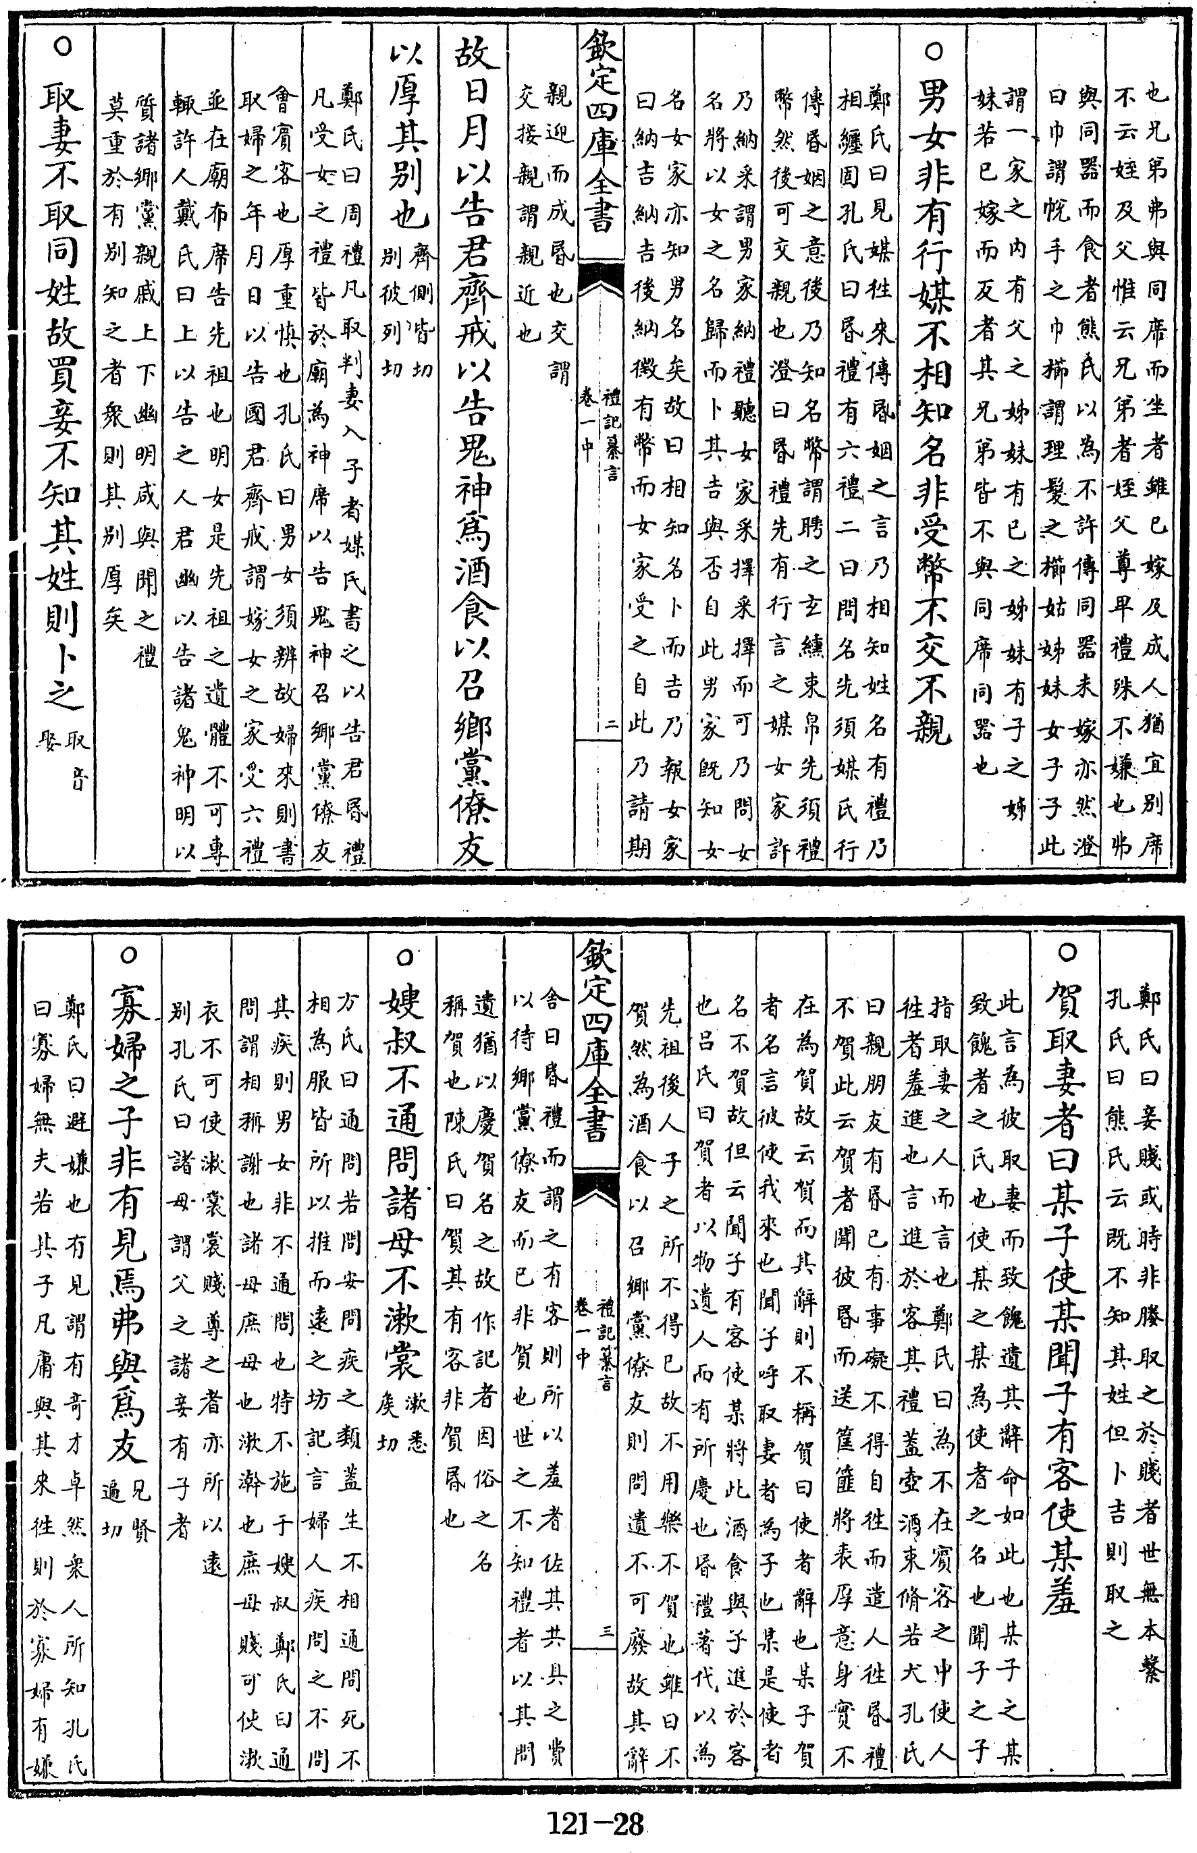 也兄弟弗與同席而坐者雖已嫁及成人猶宜別席
不云姪及父惟云兄弟者姪父尊卑禮殊不嫌也弗
與同器而食者熊氏以為不許傳同器未嫁亦然澄
曰巾謂帨手之巾櫛謂理髮之櫛姑姊妹女子子此
謂一家之内有父之姊妹有已之姊妹有子之姊
妹若已嫁而反者其兄弟皆不與同席同器也
○男女非有行媒不相知名非受幣不交不親
鄭氏曰見媒往來傳昬姻之言乃相知姓名有禮乃
相纏固孔氏曰昬禮有六禮二曰問名先須媒氏行
傳昬姻之意後乃知名幣謂聘之玄纁束帛先須禮
幣然後可交親也澄曰昬禮先有行言之媒女家許
乃納采謂男家納禮聽女家采擇采擇而可乃問女
名將以女之名歸而卜其吉與否自此男家既知女
名女家亦知男名矣故曰相知名卜而吉乃報女家
曰納吉納吉後納徵有幣而女家受之自此乃請期
欽定四庫全書
禮記纂言
卷一中
二
親迎而成昬也交謂
交接親謂親近也
故日月以告君齊戒以告鬼神為酒食以召鄉黨僚友
以厚其别也
齊側皆切
別彼列切
鄭氏曰周禮凡取判妻入子者媒氏書之以告君昬禮
凡受女之禮皆於廟為神席以告鬼神召鄉黨僚友
會賓客也厚重慎也孔氏曰男女須辨故婦來則書
取婦之年月日以告國君齊戒謂嫁女之家受六禮
並在廟布席告先祖也明女是先祖之遺體不可專
輒許人戴氏曰上以告之人君幽以告諸鬼神明以
質諸鄉黨親戚上下幽明咸與聞之禮
莫重於有別知之者衆則其別厚矣
○取妻不取同姓故買妾不知其姓則卜之
取音
娶
鄭氏曰妾賤或時非媵取之於賤者世無本繫
孔氏曰熊氏云既不知其姓但卜吉則取之
○賀取妻者曰某子使某聞子有客使某羞
此言為彼取妻而致餽遺其辭命如此也某子之某
致餽者之氏也使某之某為使者之名也聞子之子
指取妻之人而言也鄭氏曰為不在賓客之中使人
往者羞進也言進於客其禮蓋壺酒束脩若犬孔氏
曰親朋友有昬已有事礙不得自往而遣人往昬禮
不賀此云賀者聞彼昬而送筐篚將表厚意身實不
在為賀故云賀而其辭則不稱賀曰使者辭也某子賀
者名言彼使我來也聞子呼取妻者為子也某是使者
名不賀故但云聞子有客使某將此酒食與子進於客
也呂氏曰賀者以物遺人而有所慶也昬禮著代以為
先祖後人子之所不得已故不用樂不賀也雖曰不
賀然為酒食以召鄉黨僚友則問遺不可廢故其辭
欽定四庫全書
禮記纂言
卷一中
三
舍曰昬禮而謂之有客則所以羞者佐其共具之費
以待鄉黨僚友而已非賀也世之不知禮者以其問
遺猶以慶賀名之故作記者因俗之名
稱賀也陳氏曰賀其有客非賀昬也
○嫂叔不通問諸母不漱裳
漱悉
矦切
方氏曰通問若問安問疾之類蓋生不相通問死不
相為服皆所以推而遠之坊記言婦人疾問之不問
其疾則男女非不通問也特不施于嫂叔鄭氏曰通
問謂相稱謝也諸母庶母也漱澣也庶母賤可使漱
衣不可使漱裳裳賤尊之者亦所以遠
別孔氏曰諸母謂父之諸妾有子者
○寡婦之子非有見焉弗與為友
見賢
遍切
鄭氏曰避嫌也有見謂有奇才卓然衆人所知孔氏
曰寡婦無夫若其子凡庸與其來往則於寡婦有嫌
121-28